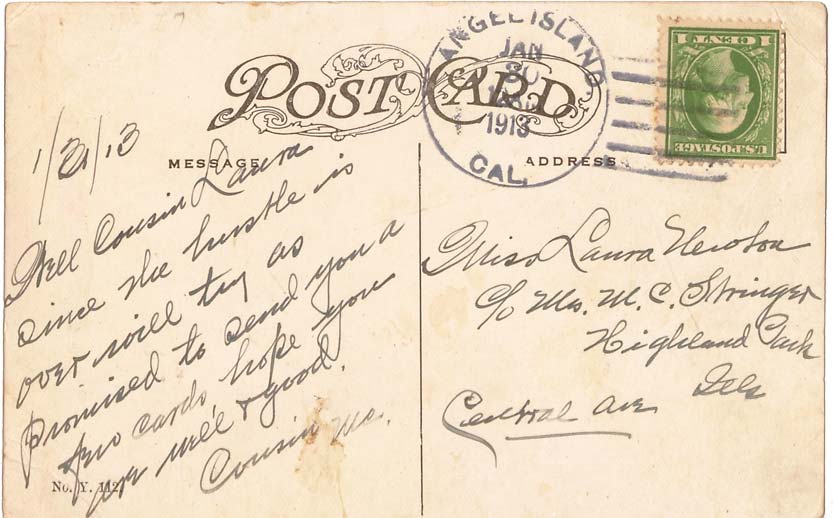 POST CARD
ANGEL ISLAND
JAN
30
1913
CAL.
1 CENT 1
U.S. POSTAGE
MESSAGE
ADDRESS
1/31/13
Well Cousin Laura
since the hustle is
over will try as
promised to send you a
few cards, hope you
are well & good.
Cousin Mc.
Miss Laura Newton
c/o Mrs. M. C. Stringer
Highland Park
Ills
Central Ave
No. Y. 112